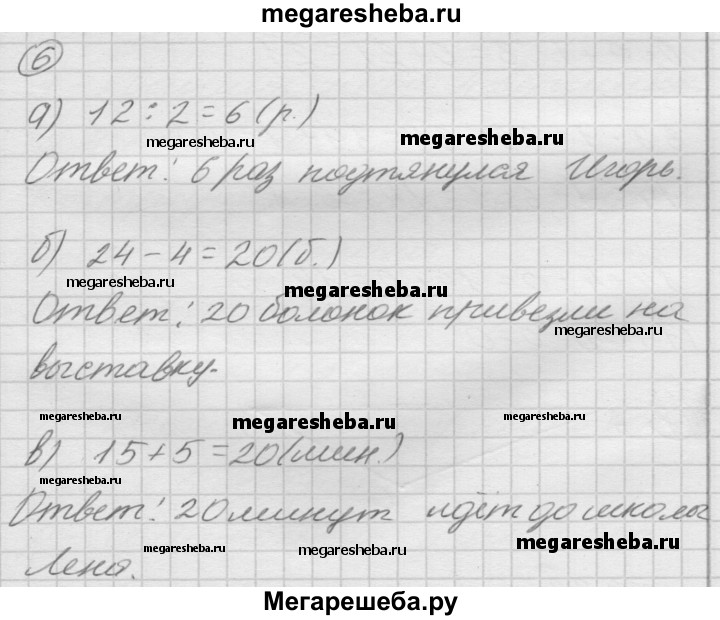 megaresheba.ru
6
а) 12 : 2 = 6 (р.)
megaresheba.ru megaresheba.ru
Ответ: 6 раз подтянулся Игорь.
б) 24 - 4 = 20 (б.)
megaresheba.ru megaresheba.ru
Ответ: 20 болонок привезли на
megaresheba.ru
выставку.
megaresheba.ru megaresheba.ru megaresheba.ru
в) 15 + 5 = 20 (мин.)
megaresheba.ru
Ответ: 20 минут идёт до школы
megaresheba.ru megaresheba.ru megaresheba.ru
Лена.
Мегарешеба.ру